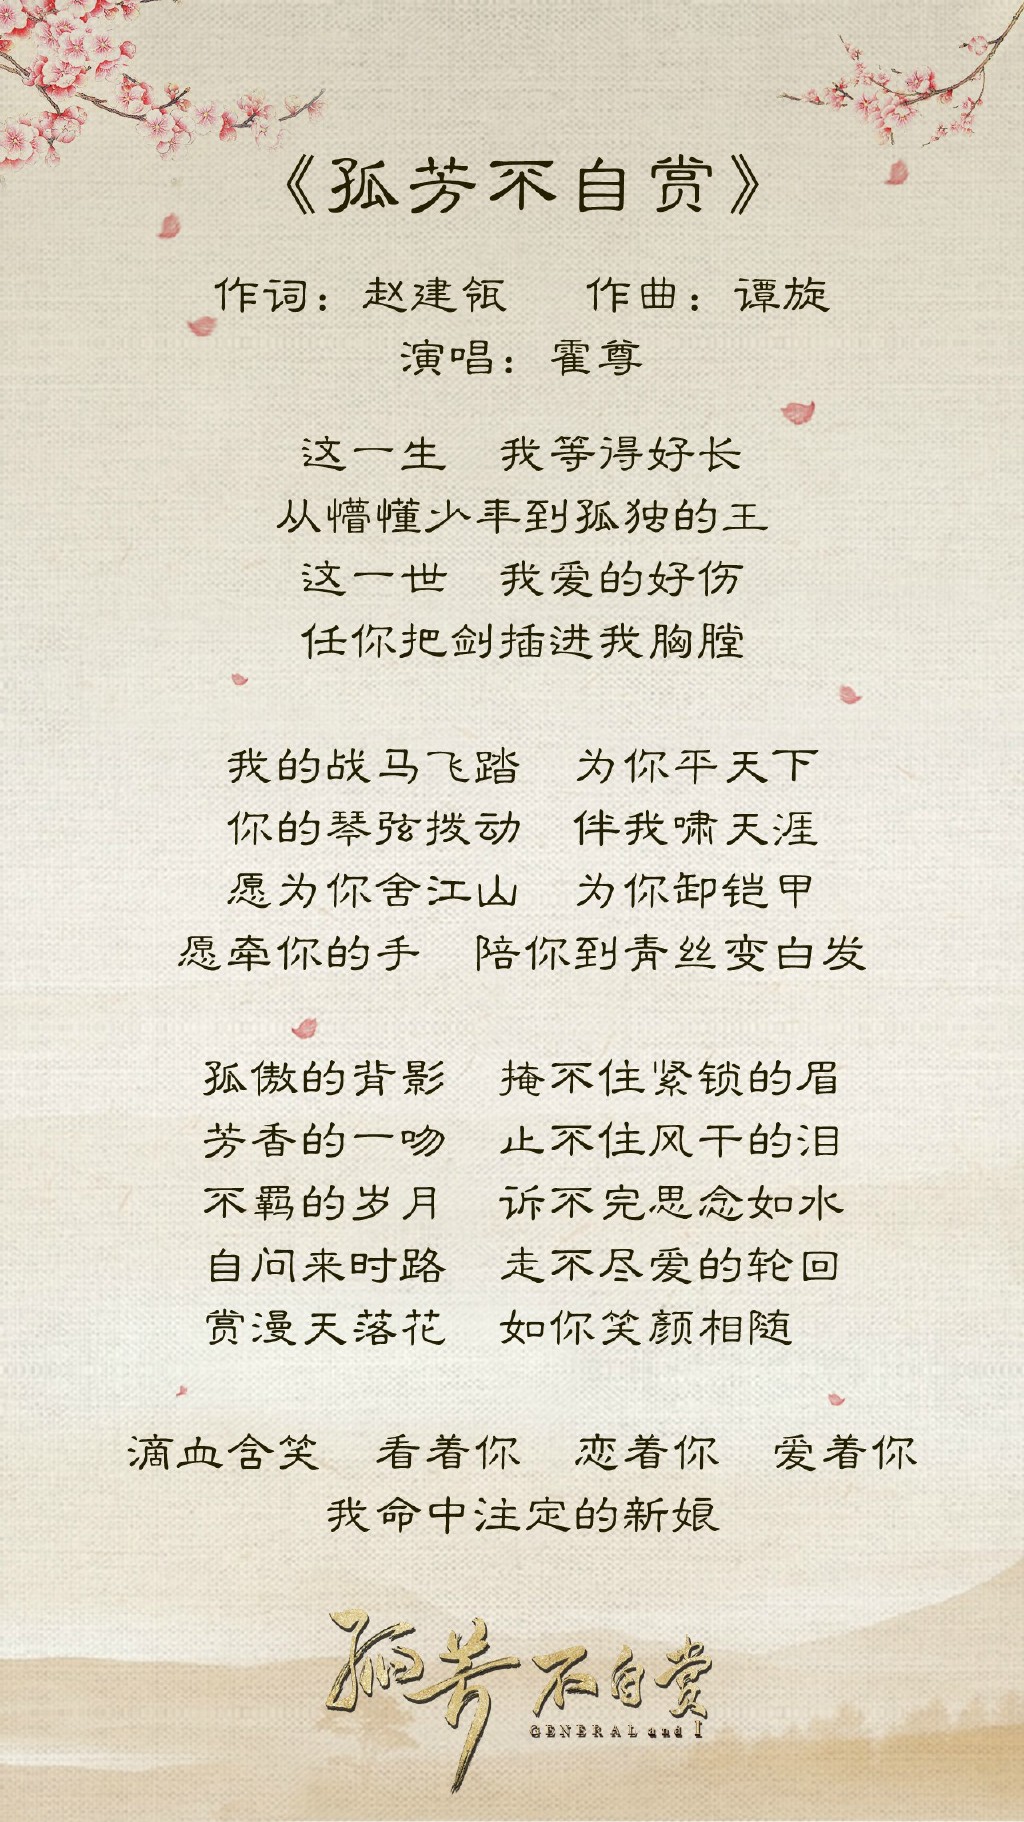 《孤芳不自赏》
作词：赵建瓴 作曲：谭旋
演唱：霍尊
这一生 我等得好长
从懵懂少年到孤独的王
这一世 我爱的好伤
任你把剑插进我胸膛
我的战马飞踏 为你平天下
你的琴弦拨动 伴我啸天涯
愿为你舍江山 为你卸铠甲
愿牵你的手 陪你到青丝变白发
孤傲的背影 掩不住紧锁的眉
芳香的一吻 止不住风干的泪
不羁的岁月 诉不完思念如水
自问来时路 走不尽爱的轮回
赏漫天落花 如你笑颜相随
滴血含笑 看着你 恋着你 爱着你
我命中注定的新娘
孤芳不自赏
GENERAL and I